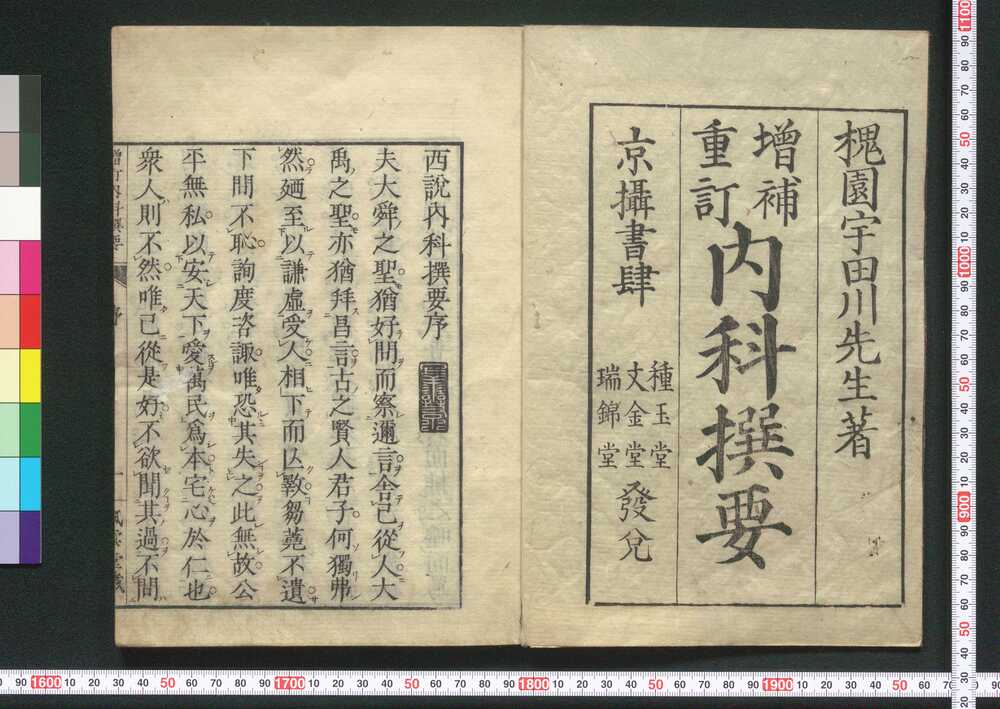 槐園宇田川先生著
增補
重訂
内科撰要
京攝書肆
種玉堂
丈金堂
瑞錦堂
發兌
西說內科撰要序
夫大舜之聖猶好問而察邇言舍己從人大
禹之聖亦猶拜昌言古之賢人君子何獨弗
然廼至以謙虛受人相下而以斆芻蕘不遺
下問不恥詢度咨諏唯恐其失之此無故公
平無私以安天下愛萬民爲本宅心於仁也
衆人則不然唯己從是好不欲聞其過不問
增訂內科撰要
序
一